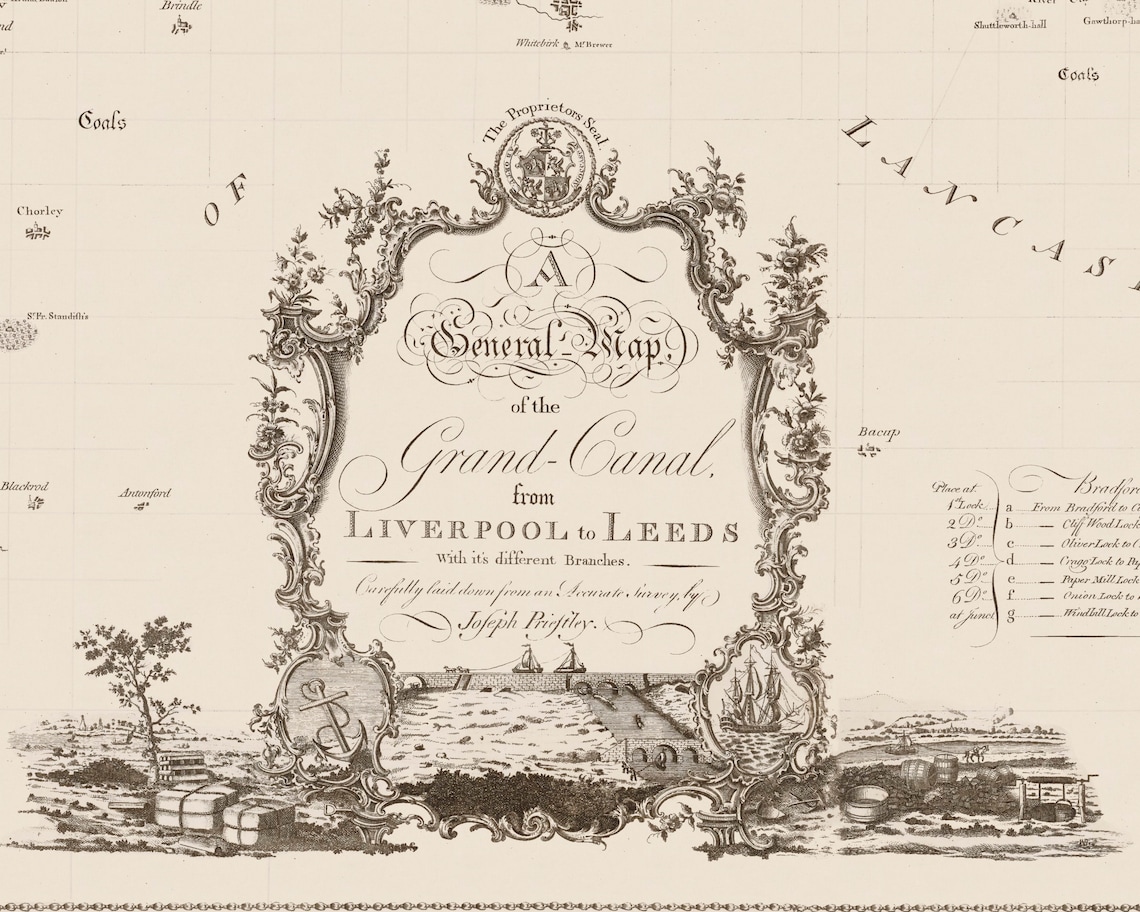 Brindle
River
Shuttleworth-hall
Gawthorp-ha
Whitebirk Mr. Brewer
Coals
Coals
The Proprietors Seal.
OF
LANCAS
Chorley
Sr. Fr. Standish's
A
General Map,
of the
Grand-Canal,
from
LIVERPOOL to LEEDS
With it's different Branches.
Carefully laid down from an Accurate Survey, by
Joseph Priestley.
Bacup
Blackrod
Antonford
Place at
1st Lock
2 Do
3 Do
4 Do
5 Do
6 Do
at Junct
Bradford
a From Bradford to C
b Cliff Wood Lock
c Oliver Lock to C
d Cragg Lock to Pap
e Paper Mill Lock
f Onion Lock to
g Windhill Lock to